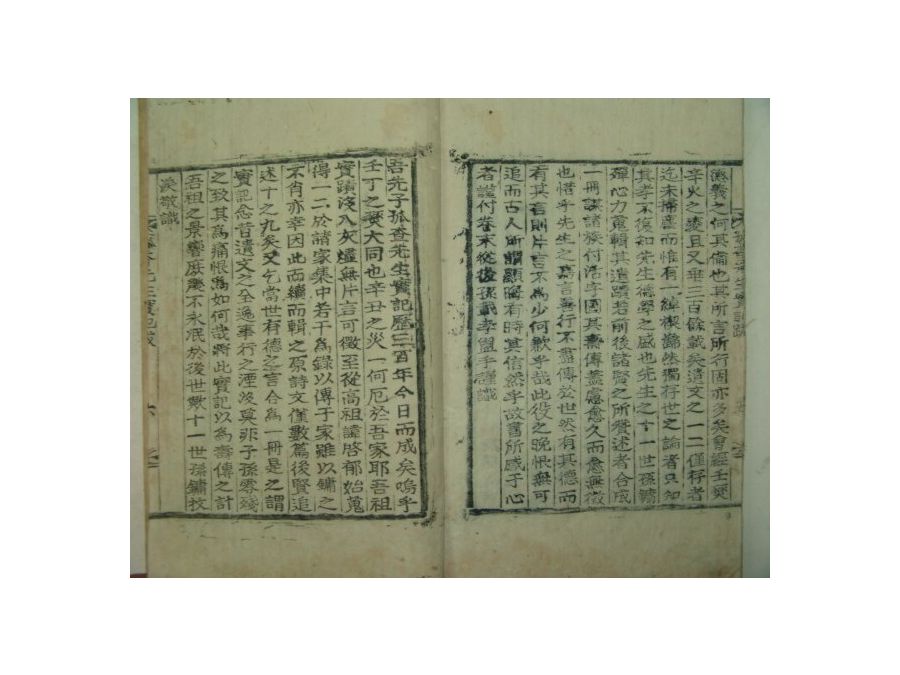 涵養之何其備也其所言所行固亦多矣曾經壬燹
辛火之後且又垂三百餘載矣遺文之一二僅存者
迄未穧而惟有一綽楔巋然獨存世之論者只知
其孝不復知先生德學之盛也先生之十一世孫鏞
殫心力蒐輯其遺蹟若前後諸賢之所贊述者合成
一冊謀諸族付活字國其壽傳蓋愈久而愈無徵
也惜乎先生之嘉言善行不盡傳於世然有其德而
有其言則片言不為少何歎乎哉此役之晚恨無可
追而古人所謂顯晦有時其信然乎故舊所感于心
者謹付卷末從後孫 孝盥手謹識
吾先子孤查先生實記歷三百年今日而成矣嗚乎
壬丁之變大同也辛丑之災一何厄於吾家耶吾祖
實蹟沒入灰燼無片言可徵至從高祖諱啓郁始蒐
得一二於諸家集中若干為錄以傳于家雖以鏞之
不肖亦幸因此而續而輯之原詩文僅數篇後賢追
述十之九矣又乞當世有德之言合為一冊是之謂
實記念昔遺文之全逸事行之湮沒莫非子孫零殘
之致其為痛恨為如何哉將此實記以為壽傳之計
吾祖之景響庶幾不永泯於後世歟十一世孫鏞抆
淚敬識